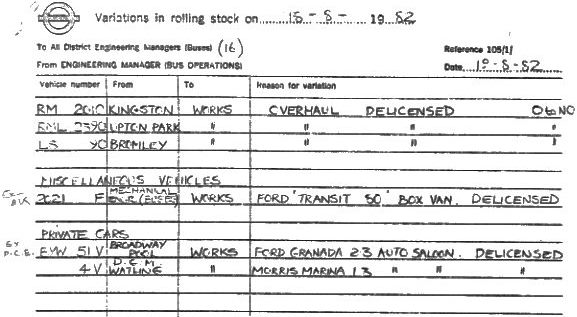 Variations in rolling stock on 18-8- 1982
To All District Engineering Managers (Buses) (16)
Reference 105/1/
From ENGINEERING MANAGER (BUS OPERATIONS)
Date 18-8-82
Vehicle number From To Reason for variation
RM 2010 KINGSTON WORKS OVERHAUL DELICENSED
RML 2390 UPTON PARK " " " "
LS 90 BROMLEY " " " "
MISCELLANEOUS VEHICLES
2021 F MECHANICAL ENGR.(BUSES) WORKS FORD 'TRANSIT 50' BOX VAN. DELICENSED
PRIVATE CARS
Ex D.C.E. EYW 51V BROADWAY POOL WORKS FORD GRANADA 2.3 AUTO SALOON. DELICENSED
4V WATLING " MORRIS MARINA 1.3 " " "